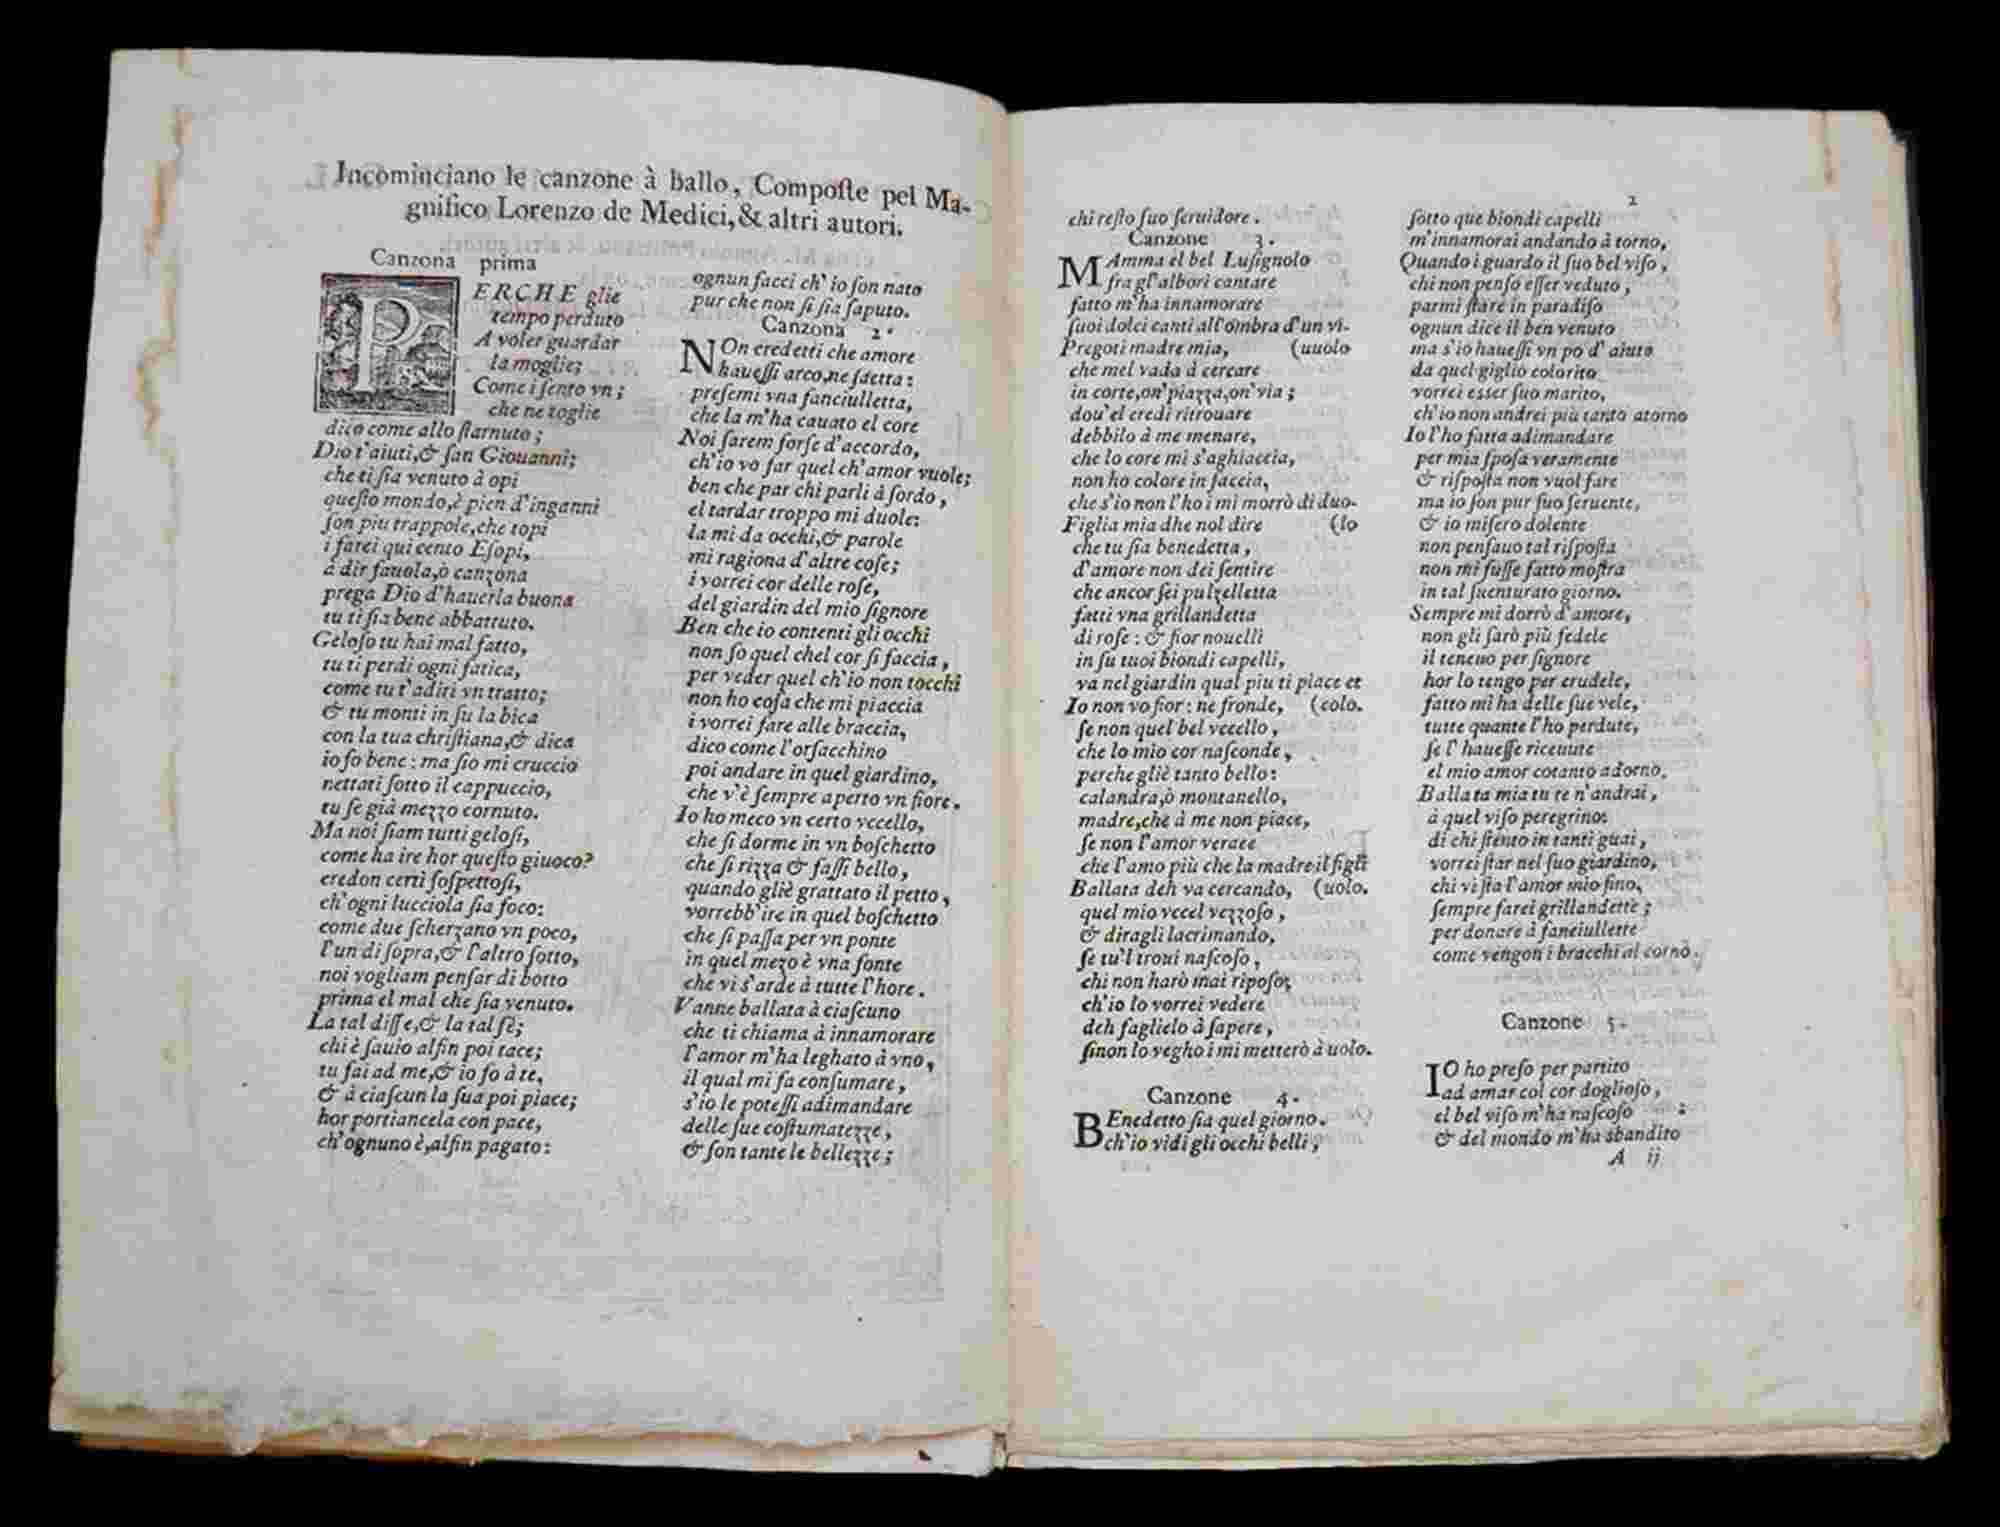 Incominciano le canzone à ballo, Compoſte pel Ma-
gnifico Lorenzo de Medici, & altri autori.
Canzona prima
PERCHE glie
tempo perduto
A voler guardar
la moglie;
Come i ſento vn;
che ne toglie
dico come allo ſtarnuto;
Dio t'aiuti, & ſan Giouanni;
che ti ſia venuto à opi
queſto mondo, è pien d'inganni
ſon piu trappole, che topi
i farei qui cento Eſopi,
à dir fauola, ò canzona
prega Dio d'hauerla buona
tu ti ſia bene abbattuto.
Geloſo tu hai mal fatto,
tu ti perdi ogni fatica,
come tu t'adiri vn tratto;
& tu monti in ſu la bica
con la tua chriſtiana, & dica
io ſo bene: ma ſio mi cruccio
nettati ſotto il cappuccio,
tu ſe già mezzo cornuto.
Ma noi ſiam tutti geloſi,
come ha ire hor queſto giuoco?
credon certi ſoſpettoſi,
ch'ogni lucciola ſia foco:
come due ſcherzano vn poco,
l'un di ſopra, & l'altro ſotto,
noi vogliam penſar di botto
prima el mal che ſia venuto.
La tal diſſe, & la tal fè;
chi è ſauio alfin poi tace;
tu fai ad me, & io fo à te,
& à ciaſcun la ſua poi piace;
hor portiancela con pace,
ch'ognuno è, alfin pagato:
ognun facci ch'io ſon nato
pur che non ſi ſia ſaputo.
Canzona 2.
NOn credetti che amore
haueſſi arco, ne ſaetta:
preſemi vna fanciulletta,
che la m'ha cauato el core
Noi ſarem forſe d'accordo,
ch'io vo far quel ch'amor vuole;
ben che par chi parli à ſordo,
el tardar troppo mi duole:
la mi da occhi, & parole
mi ragiona d'altre coſe;
i vorrei cor delle roſe,
del giardin del mio ſignore
Ben che io contenti gli occhi
non ſo quel chel cor ſi faccia,
per veder quel ch'io non tocchi
non ho coſa che mi piaccia
i vorrei fare alle braccia,
dico come l'orſacchino
poi andare in quel giardino,
che v'è ſempre aperto vn fiore.
Io ho meco vn certo vccello,
che ſi dorme in vn boſchetto
che ſi rizza & faſſi bello,
quando gliè grattato il petto,
vorrebb'ire in quel boſchetto
che ſi paſſa per vn ponte
in quel mezo è vna fonte
che vi s'arde à tutte l'hore.
Vanne ballata à ciaſcuno
che ti chiama à innamorare
l'amor m'ha leghato à vno,
il qual mi fa conſumare,
s'io le poteſſi adimandare
delle ſue coſtumatezze,
& ſon tante le bellezze;
2
chi reſto ſuo ſeruidore.
Canzone 3.
MAmma el bel Luſignolo
fra gl'albori cantare
fatto m'ha innamorare
ſuoi dolci canti all'ombra d'un vi-
Pregoti madre mia, (uuolo
che mel vada à cercare
in corte, on'piazza, on'via;
dou'el credi ritrouare
debbilo à me menare,
che lo core mi s'aghiaccia,
non ho colore in faccia,
che s'io non l'ho i mi morrò di duo-
Figlia mia dhe nol dire (lo
che tu ſia benedetta,
d'amore non dei ſentire
che ancor ſei pulzelletta
fatti vna grillandetta
di roſe: & fior nouelli
in ſu tuoi biondi capelli,
va nel giardin qual piu ti piace et
Io non vo fior: ne fronde, (colo.
ſe non quel bel vccello,
che lo mio cor naſconde,
perche gliè tanto bello:
calandra, ò montanello,
madre, che à me non piace,
ſe non l'amor verace
che l'amo più che la madre il figli
Ballata deh va cercando, (uolo.
quel mio vccel vezzoſo,
& diragli lacrimando,
ſe tu'l troui naſcoſo,
chi non harò mai ripoſo;
ch'io lo vorrei vedere
deh faglielo à ſapere,
ſinon lo vegho i mi metterò à uolo.
Canzone 4.
BEnedetto ſia quel giorno.
ch'io vidi gli occhi belli;
ſotto que biondi capelli
m'innamorai andando à torno,
Quando i guardo il ſuo bel viſo,
chi non penſo eſſer veduto,
parmi ſtare in paradiſo
ognun dice il ben venuto
ma s'io haueſſi vn po d'aiuto
da quel giglio colorito
vorrei esser ſuo marito,
ch'io non andrei più tanto atorno
Io l'ho fatta adimandare
per mia ſpoſa veramente
& riſpoſta non vuol fare
ma io ſon pur ſuo ſeruente,
& io miſero dolente
non penſauo tal riſpoſta
non mi fuſſe fatto moſtra
in tal ſuenturato giorno.
Sempre mi dorrò d'amore,
non gli ſarò più fedele
il teneuo per ſignore
hor lo tengo per crudele,
fatto mi ha delle ſue vele,
tutte quante l'ho perdute,
ſe l'haueſſe riceuute
el mio amor cotanto adorno.
Ballata mia tu te n'andrai,
à quel viſo peregrino:
di chi ſtento in tanti guai,
vorrei ſtar nel ſuo giardino,
chi vi ſta l'amor mio fino,
ſempre farei grillandette;
per donare à fanciullette
come vengon i bracchi al corno.
Canzone 5.
IO ho preſo per partito
ad amar col cor doglioſo,
el bel viſo m'ha naſcoſo :
& del mondo m'ha sbandito
A ij